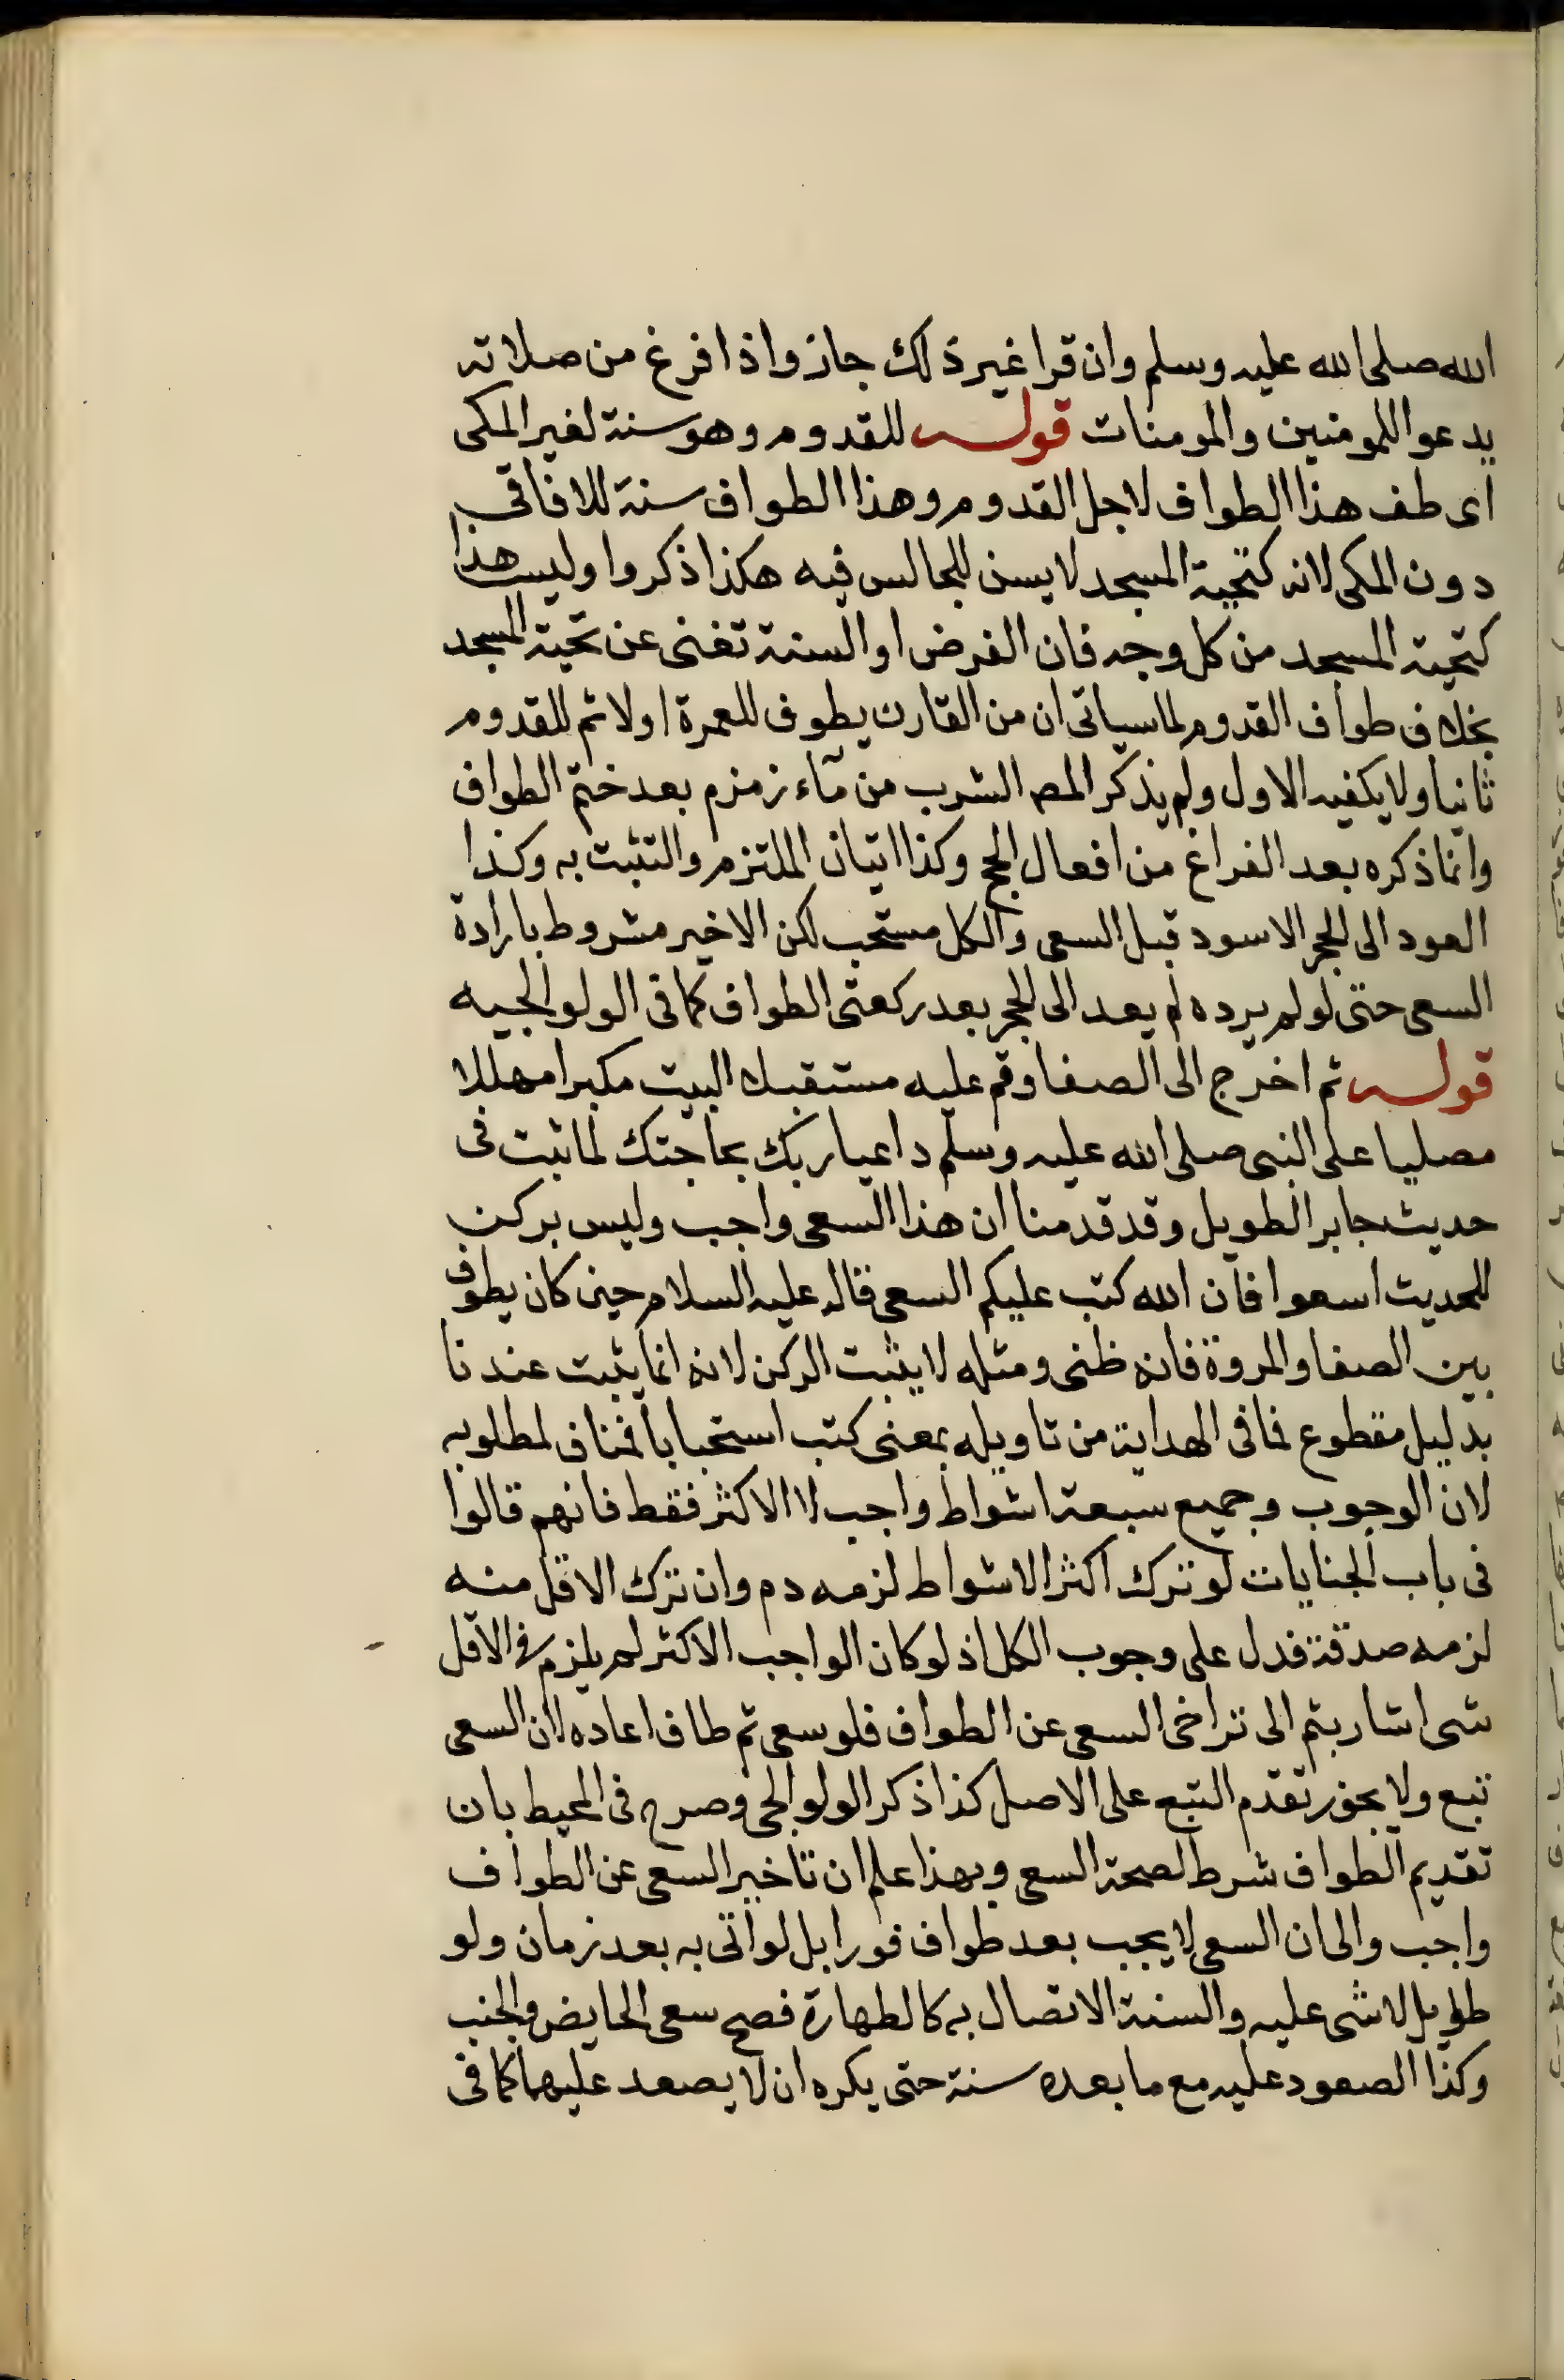 الله صلى الله عليه وسلم وان قرا غير ذلك جاز واذا فرغ من صلاته
يدعوا للمومنين والمومنات قوله للقدوم وهو سنة لغير المكى
اى طف هذا الطواف لاجل القدوم وهذا الطواف سنة للافاقى
دون المكى لانه كتحية المسجد لا يسن للجالس فيه هكذا ذكروا وليس هذا
كتحية المسجد من كل وجه فان الفرض او السنة تغنى عن تحية المسجد
بخلاف طواف القدوم لما سياتى ان من القارن يطوف للعمرة اولا ثم للقدوم
ثانيا ولا يكفيه الاول ولم يذكر المص الشرب من مآء زمزم بعد ختم الطواف
وانما ذكره بعد الفراغ من افعال الحج وكذا اتيان الملتزم والتثبت به وكذا
العود الى الحجر الاسود قبل السعى والكل مستحب لكن الاخير مشروط بارادة
السعى حتى لو لم يرده لم يعد الى الحجر بعد ركعتى الطواف كما فى الولوالجيه
قوله ثم اخرج الى الصفا وقم عليه مستقبل البيت مكبرا مهللا
مصليا على النبى صلى الله عليه وسلم داعيا ربك بحاجتك لما ثبت فى
حديث جابر الطويل وقد قدمنا ان هذا السعى واجب وليس بركن
للحديث اسعوا فان الله كتب عليكم السعى قاله عليه السلام حين كان يطوف
بين الصفا والمروة فانه ظنى ومثله لا يثبت الركن لانه انما يثبت عندنا
بدليل مقطوع فما فى الهداية من تاويله بمعنى كتب استحبابا فمناف لمطلوبه
لان الوجوب وجميع سبعة اشواط واجب لا الاكثر فقط فانهم قالوا
فى باب الجنايات لو ترك اكثر الاشواط لزمه دم وان ترك الاقل منه
لزمه صدقة فدل على وجوب الكل اذ لو كان الواجب الاكثر لم يلزم فى الاقل
شى اشار بثم الى تراخى السعى عن الطواف فلو سعى ثم طاف اعاده لان السعى
تبع ولا يجوز تقدم التبع على الاصل كذا ذكر الولوالجى وصرح فى المحيط بان
تقديم الطواف شرط لصحة السعى وبهذا علم ان تاخير السعى عن الطواف
واجب والى ان السعى لا يجب بعد طواف فورا بل لو اتى به بعد زمان ولو
طويل لا شى عليه والسنة الاتصال به كالطهارة فصح سعى الحايض والجنب
وكذا الصعود عليه مع ما بعده سنة حتى يكره ان لا يصعد عليهما كما فى